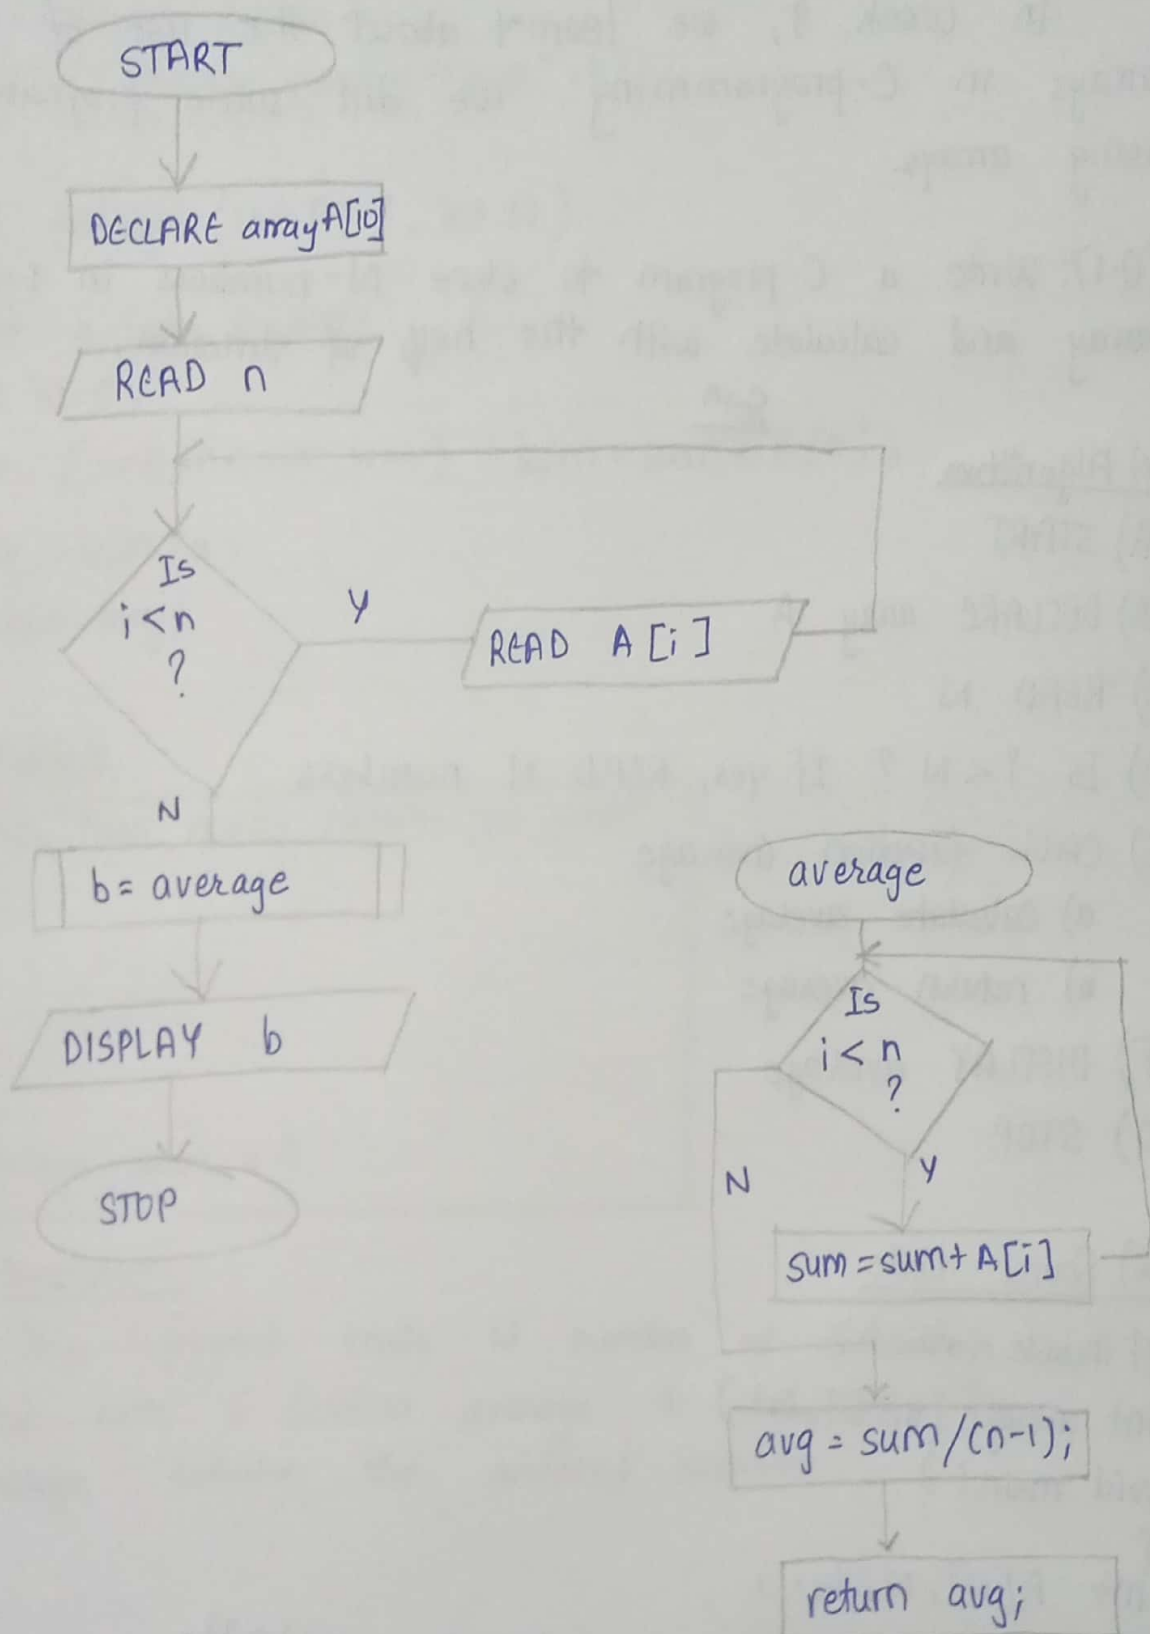 START
DECLARE array A[10]
READ n
Is
i<n
?
Y
READ A[i]
N
b= average
DISPLAY b
STOP
average
Is
i<n
?
N
Y
sum=sum+A[i]
avg = sum/(n-1);
return avg;